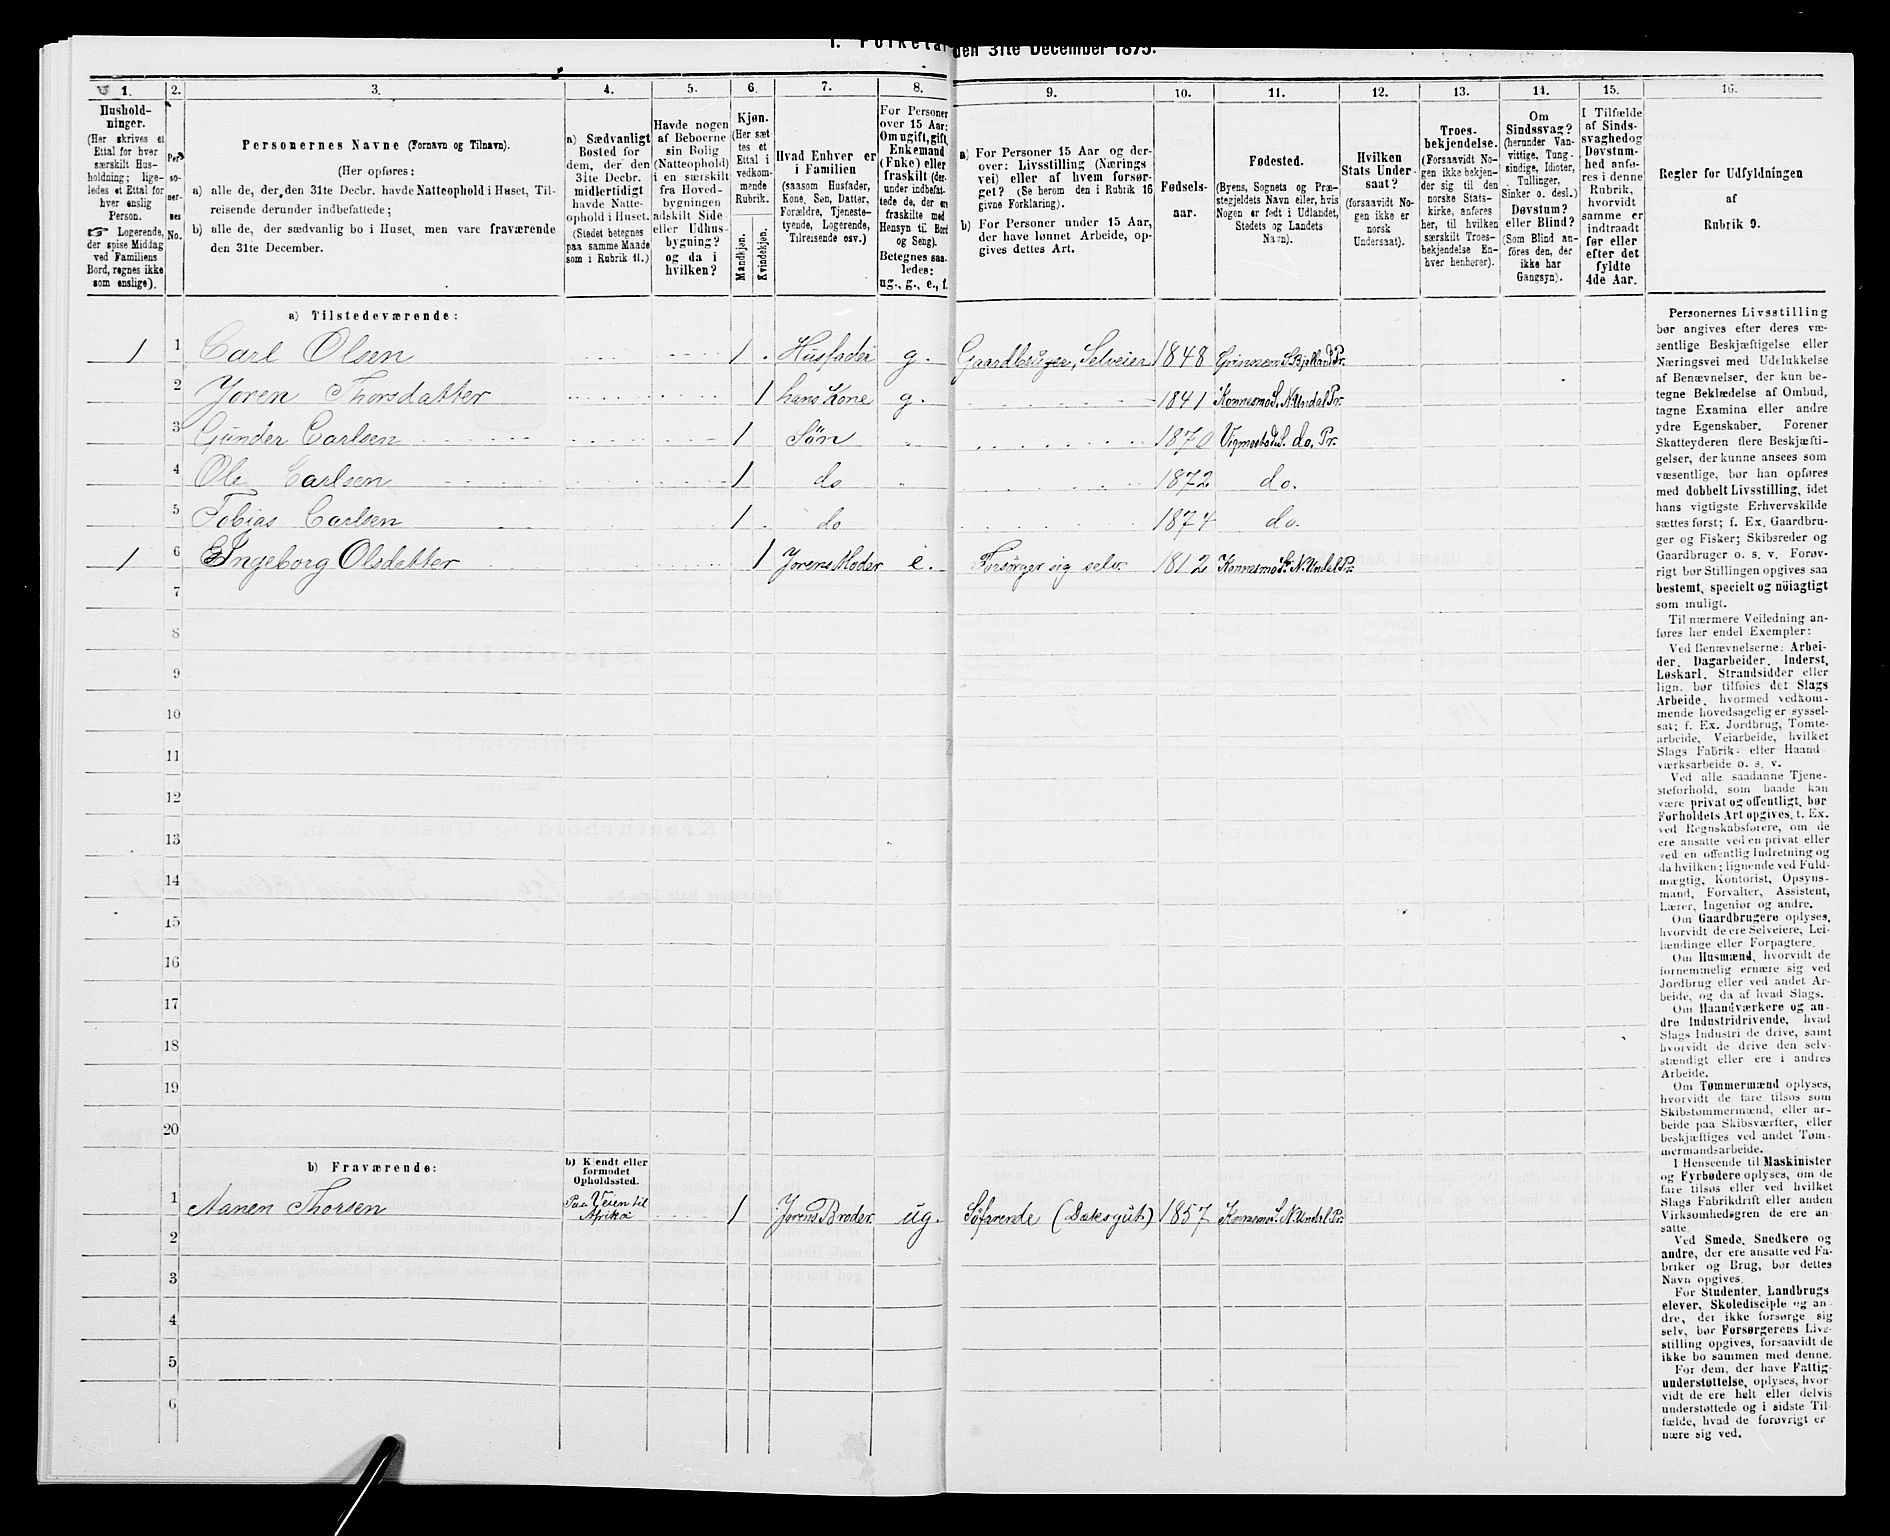 1. Folketal den 31te December 1875.
1. 2. 3. 4. 5. 6. 7. 8. 9. 10. 11. 12. 13. 14. 15. 16.
Hushold-
ninger.
(Her skrives et
Ettal for hver
særskilt Hus-
holdning; lige-
ledes et Ettal for
hver enslig
Person.
☞ Logerende,
der spise Middag
ved Familiens
Bord, regnes ikke
som enslige).
Per-
soner-
nes
No.
Personernes Navne (Fornavn og Tilnavn).
(Her opføres:
a) alle de, der den 31te Decbr. havde Natteophold i Huset, Til-
reisende derunder indbefattede;
b) alle de, der sædvanlig bo i Huset, men vare fraværende
den 31te December.
a) Sædvanligt
Bosted for
dem, der den
31te Decbr.
midlertidigt
havde Natte-
ophold i Huset.
(Stedet betegnes
paa samme Maade
som i Rubrik 11.)
Havde nogen
af Beboerne
sin Bolig
(Natteophold)
i en særskilt
fra Hoved-
bygningen
adskilt Side-
eller Udhus-
bygning?
og da i
hvilken?
Kjøn.
(Her sæt-
tes et
Ettal i
vedkom-
mende
Rubrik.
Mandkjøn.
Kvindekjøn.
Hvad Enhver er
i Familien
(saasom Husfader,
Kone, Søn, Datter,
Forældre, Tjeneste-
tyende, Logerende,
Tilreisende osv.)
For Personer
over 15 Aar:
Om ugift, gift,
Enkemand
(Enke) eller
fraskilt (der-
under indbefat-
tede de, der ere
fraskilte med
Hensyn til Bord
og Seng).
Betegnes saa-
ledes:
ug., g., e., f.
a) For Personer 15 Aar og der-
over: Livsstilling (Nærings-
vei) eller af hvem forsør-
get? (Se herom den i Rubrik 16
givne Forklaring).
b) For Personer under 15 Aar,
der have lønnet Arbeide, op-
gives dettes Art.
Fødsels-
aar.
Fødested.
(Byens, Sognets og Præ-
stegjeldets Navn eller, hvis
Nogen er født i Udlandet,
Stedets og Landets
Navn).
Hvilken
Stats Under-
saat?
(forsaavidt No-
gen ikke er
norsk
Undersaat).
Troes-
bekjendelse.
(Forsaavidt No-
gen ikke bekjen-
der sig til den
norske Stats-
kirke, anføres
her, til hvilken
særskilt Troes-
bekjendelse En-
hver henhører).
Om
Sindssvag?
(herunder Van-
vittige, Tung-
sindige, Idioter,
Tullinger,
Sinker o. desl.)
Døvstum?
eller Blind?
(Som Blind an-
føres den, der
ikke har
Gangsyn).
I Tilfælde
af Sinds-
svaghed og
Døvstum-
hed anfø-
res i denne
Rubrik,
hvorvidt
samme er
indtraadt
før eller
efter det
fyldte
4de Aar.
Regler for Udfyldningen
af
Rubrik 9.
a) Tilstedeværende:
1 1 Carl Olsen 1 Husfader g. Gaardbruger, Selveier 1848 S. Bjelland Pr.
2 Joren Thorsdatter 1 hans Kone g. 1841 Konnesmo S. N. Undal Pr.
3 Gunder Carlsen 1 Søn 1870 Vigmostad S. do. Pr.
4 Ole Carlsen 1 do 1872 do.
5 Tobias Carlsen 1 do 1874 do.
1 6 Ingeborg Olsdatter 1 Jorens Moder e. Forsørger sig selv. 1812 Konnesmo S. N. Undal Pr.
7
8
9
10
11
12
13
14
15
16
17
18
19
20
b) Fraværende:
b) Kjendt eller
formodet
Opholdssted.
1 Aanen Thorsen Paa Veien til Afrika 1 Jorens Broder ug. Søfarende (Daksgut) 1857 Konnesmo S. N. Undal Pr.
2
3
4
5
6
Personernes Livsstilling
bør angives efter deres væ-
sentlige Beskjæftigelse eller
Næringsvei med Udelukkelse
af Benævnelser, der kun be-
tegne Beklædelse af Ombud,
tagne Examina eller andre
ydre Egenskaber. Forener
Skatteyderen flere Beskjæfti-
gelser, der kunne ansees som
væsentlige, bør han opføres
med dobbelt Livsstilling, idet
hans vigtigste Erhvervskilde
sættes først; f. Ex. Gaardbru-
ger og Fisker; Skibsreder og
Gaardbruger o. s. v. Forøv-
rigt bør Stillingen opgives saa
bestemt, specielt og nöiagtigt
som muligt.
Til nærmere Veiledning an-
føres her endel Exempler:
Ved Benævnelserne: Arbei-
der, Dagarbeider, Inderst,
Løskarl, Strandsidder eller
lign. bør tilføies det Slags
Arbeide, hvormed vedkom-
mende hovedsagelig er syssel-
sat; f. Ex. Jordbrug, Tomte-
arbeide, Veiarbeide, hvilket
Slags Fabrik- eller Haand-
værksarbeide o. s. v.
Ved alle saadanne Tjene-
steforhold, som baade kan
være privat og offentligt, bør
Forholdets Art opgives, t. Ex.
ved Regnskabsførere, om de
ere ansatte ved en privat eller
ved en offentlig Indretning og
da hvilken; lignende ved Fuld-
mægtig, Kontorist, Opsyns-
mand, Forvalter, Assistent,
Lærer, Ingeniør og andre.
Om Gaardbrugere oplyses,
hvorvidt de ere Selveiere, Lei-
lændinge eller Forpagtere.
Om Husmænd, hvorvidt de
fornemmelig ernære sig ved
Jordbrug eller ved andet Ar-
beide, og da af hvad Slags.
Om Haandværkere og an-
dre Industridrivende, hvad
Slags Industri de drive, samt
hvorvidt de drive den selv-
stændigt eller ere i andres
Arbeide.
Om Tømmermænd oplyses,
hvorvidt de fare tilsøs som
Skibstømmermænd, eller ar-
beide paa Skibsværfter, eller
beskjæftiges ved andet Tøm-
mermandsarbeide.
I Henseende til Maskinister
og Fyrbødere oplyses, om de
fare tilsøs eller ved hvilket
Slags Fabrikdrift eller anden
Virksomhedsgren de ere an-
satte.
Ved Smede, Snedkere og
andre, der ere ansatte ved Fa-
briker og Brug, bør dettes
Navn opgives.
For Studenter, Landbrugs-
elever, Skoledisciple og an-
dre, der ikke forsørge sig
selv, bør Forsørgerens Livs-
stilling opgives, forsaavidt de
ikke bo sammen med denne.
For dem, der have Fattig-
understøttelse, oplyses, hvor-
vidt de ere helt eller delvis
understøttede og i sidste Til-
fælde, hvad de forøvrigt er-
nære sig ved.